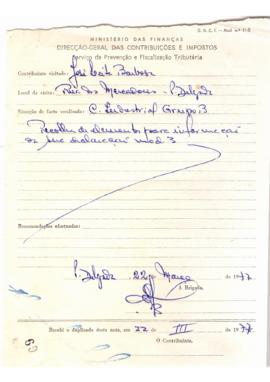 D. G. C. I. — Mod. n.º 11-B
MINISTÉRIO DAS FINANÇAS
DIRECÇÃO-GERAL DAS CONTRIBUIÇÕES E IMPOSTOS
Serviço de Prevenção e Fiscalização Tributária
Contribuinte visitado: José Leite Barbosa
Local da visita: Rua dos Mercadores - P. Delgada
Situação de facto verificada: C. Industrial Grupo B
Recolha de elementos para informação
declaração mod. 3
Recomendações efectuadas:
P. Delgada 22 Março de 1977
A Brigada,
Recebi o duplicado desta nota, em 22 III de 1977
O Contribuinte,